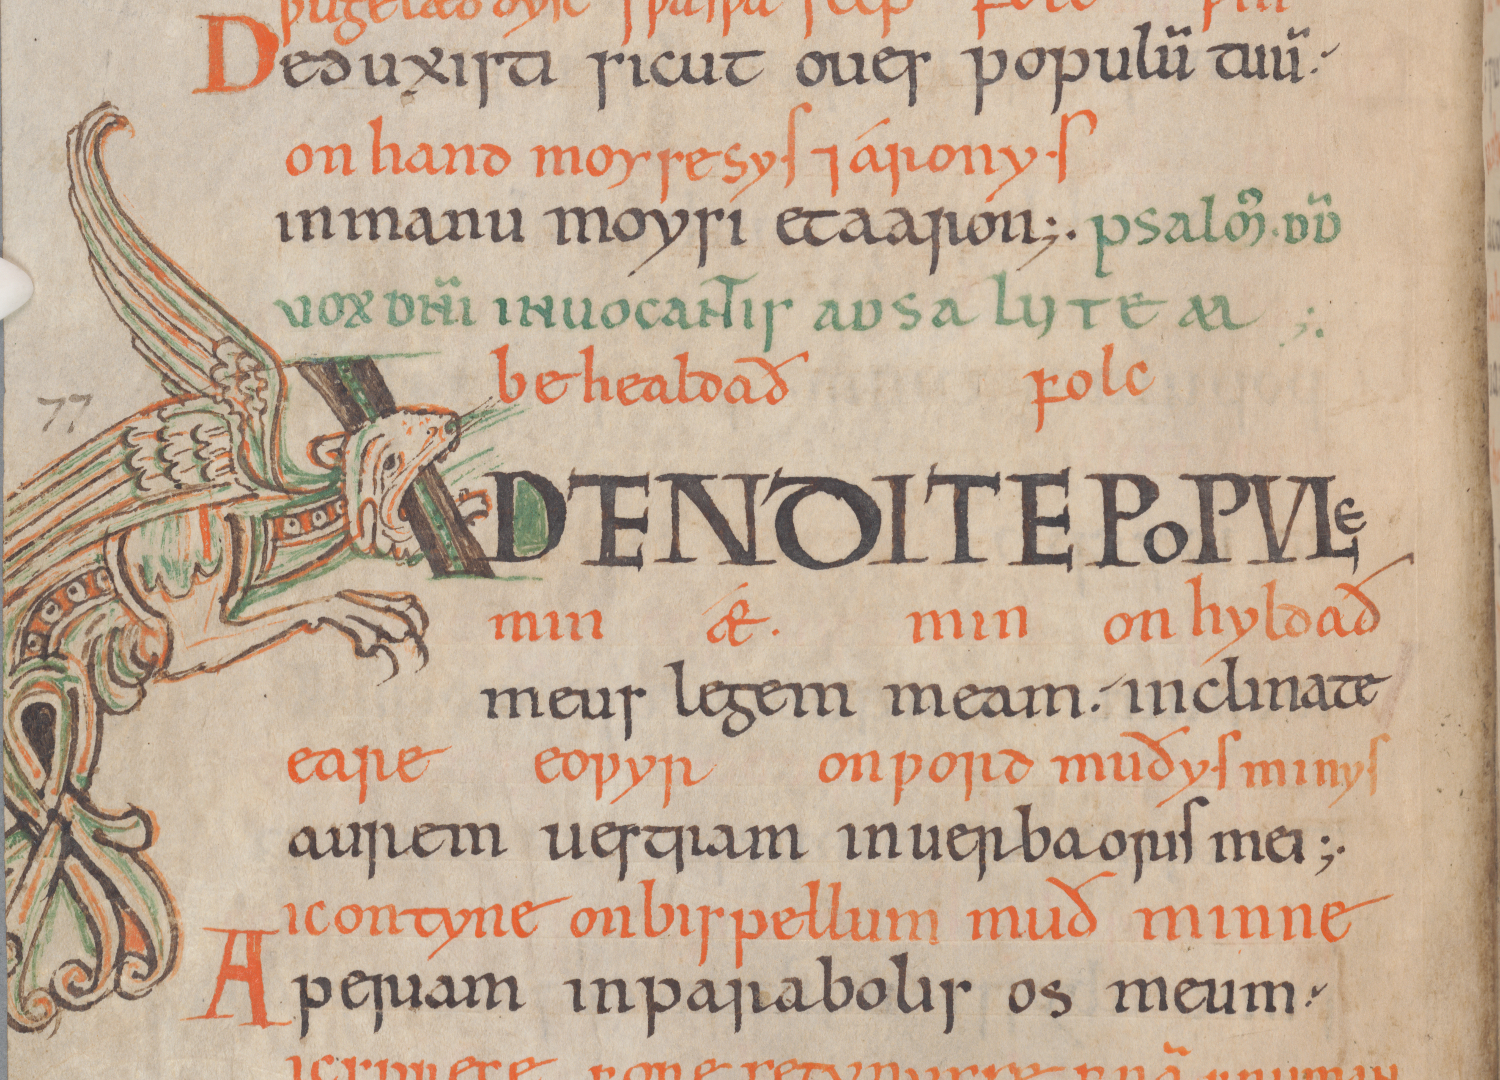 þu gelæddyst spaspa scep folc þin
Deduxisti sicut oues populū tuū
on hand moysesys ⁊ áaronys
inmanu moysi etaaron;. psalm̄. dd̄
uox dn̄i inuocantis adsalutem ;.
behealdað folc
77
ADTENDITE POPULE
min ǽ. min onhyldað
meus legem meam. inclinate
eare eoƿyr onƿord muðys minys
aurem uestram inuerba oris mei ;.
ic ontyne onbispellum muð minne
Aperiam inparabolis os meum.